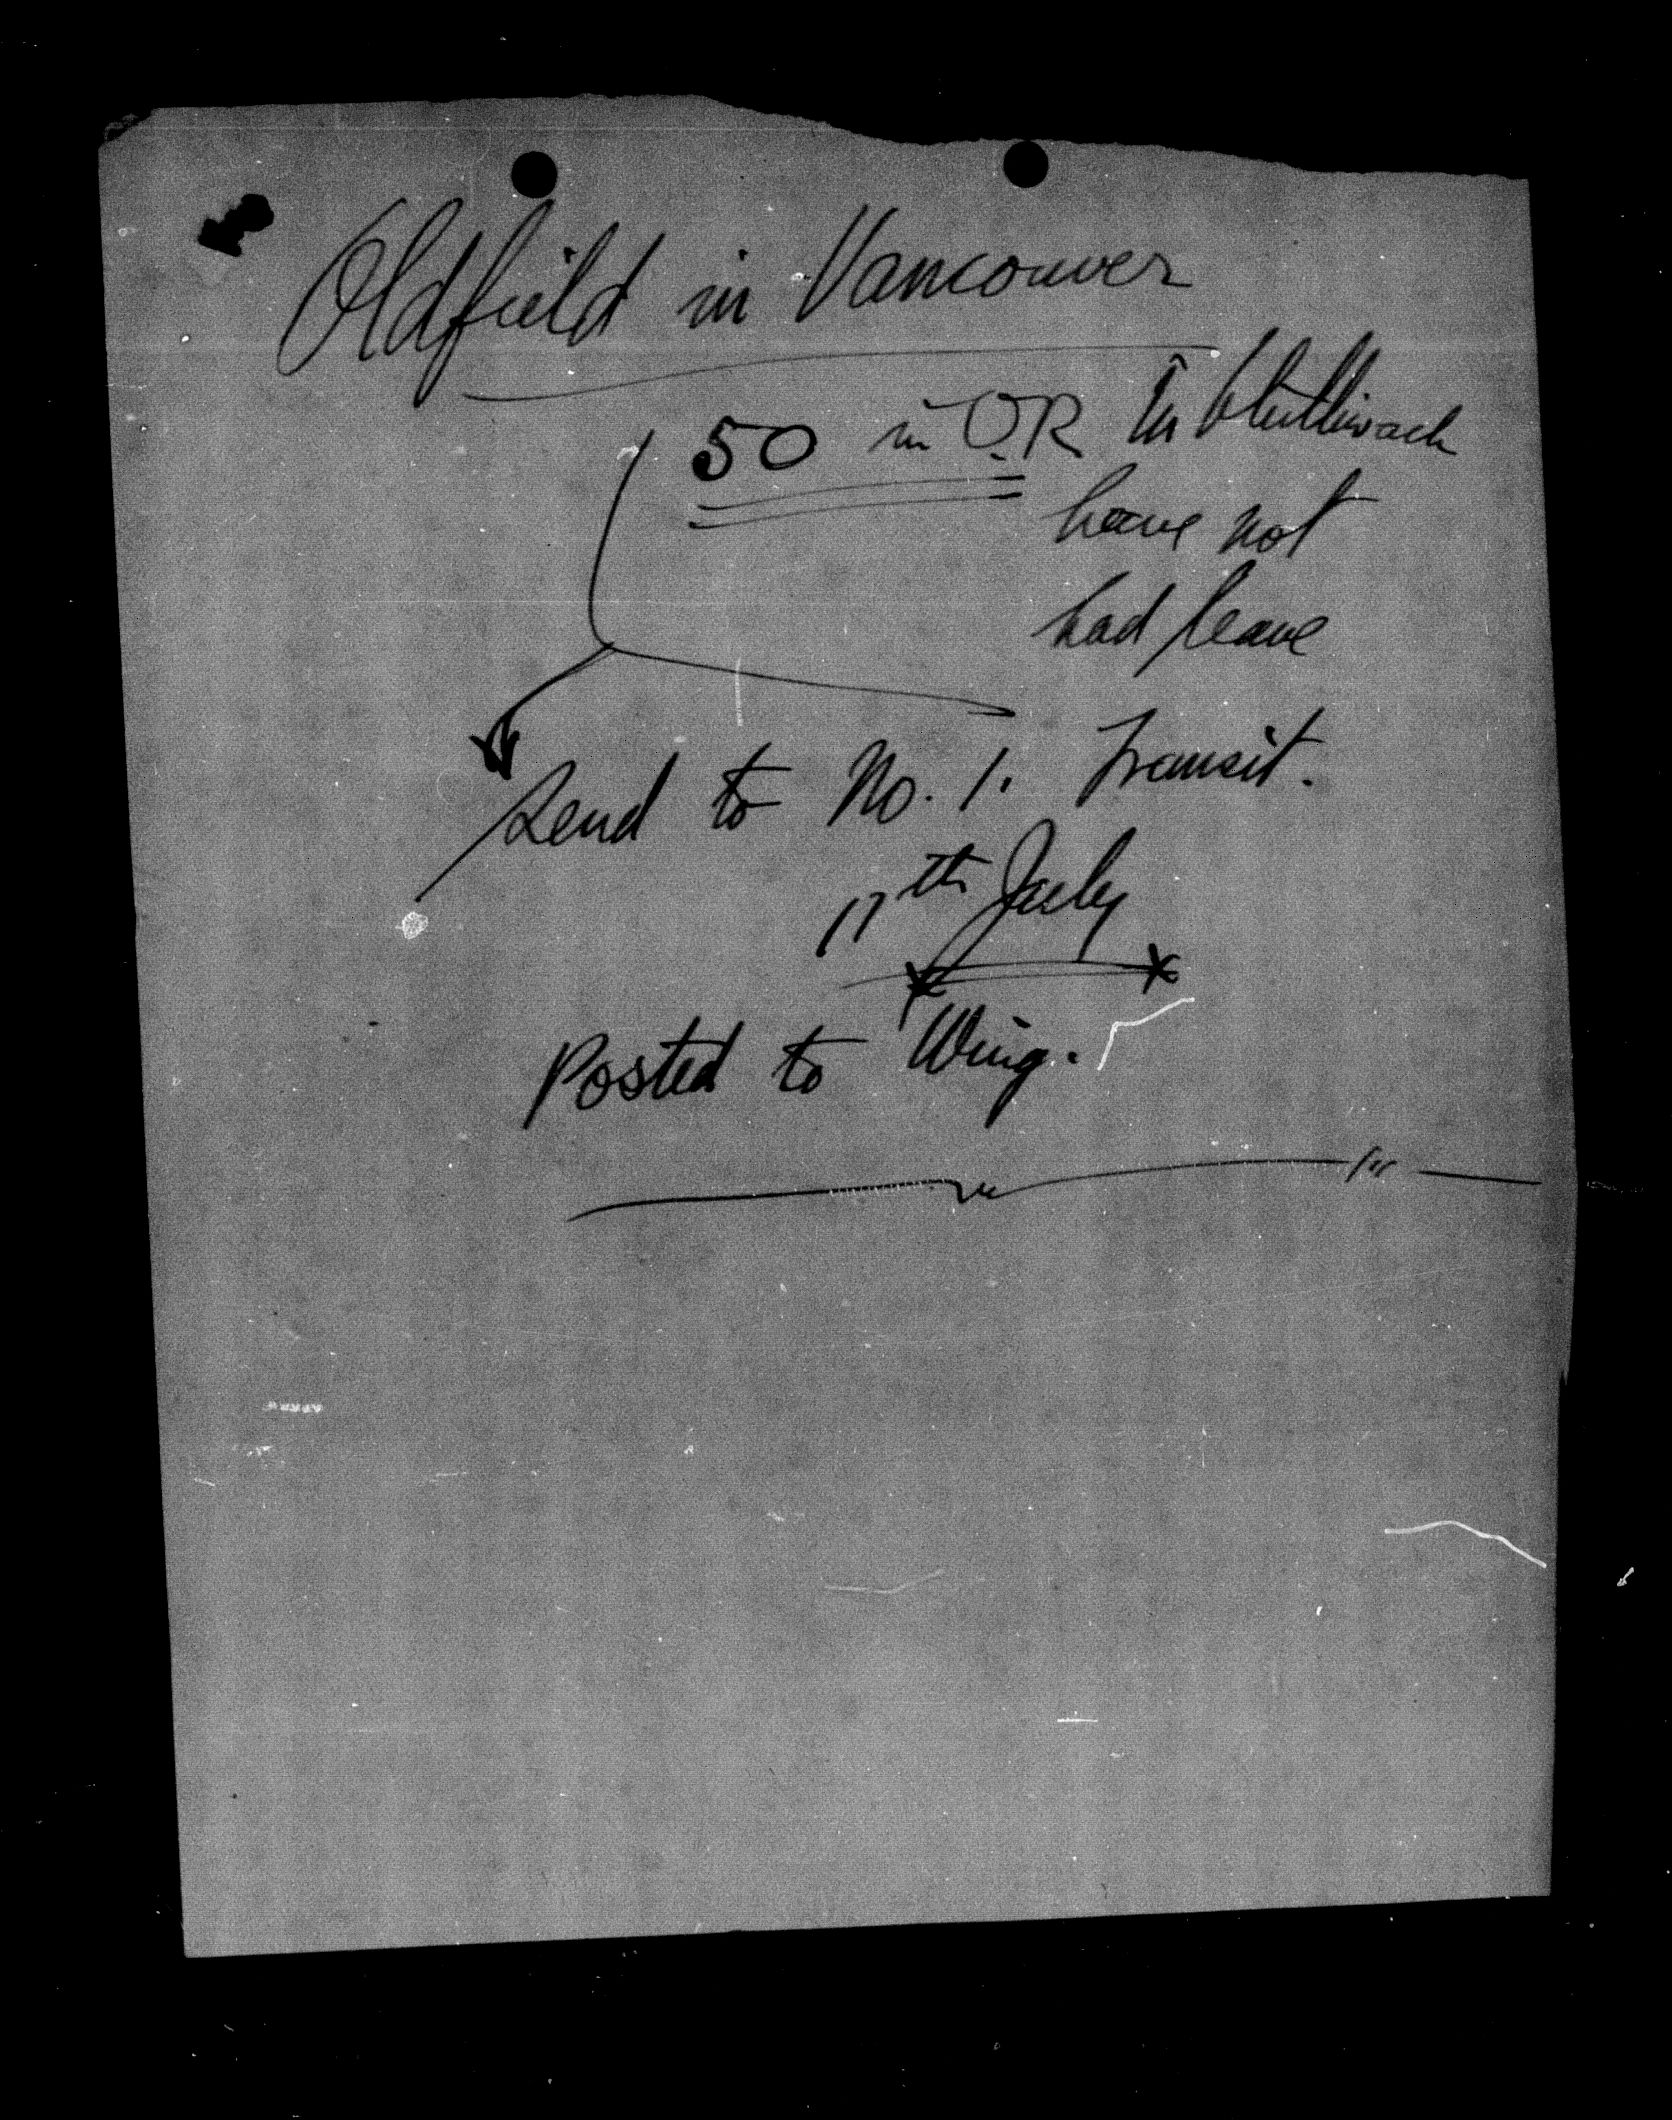 Oldfield in Vancouver
50 in OR in Chilliwack
have not
had leave
Send to No. 1. Transit.
17th July
Posted to Wing.